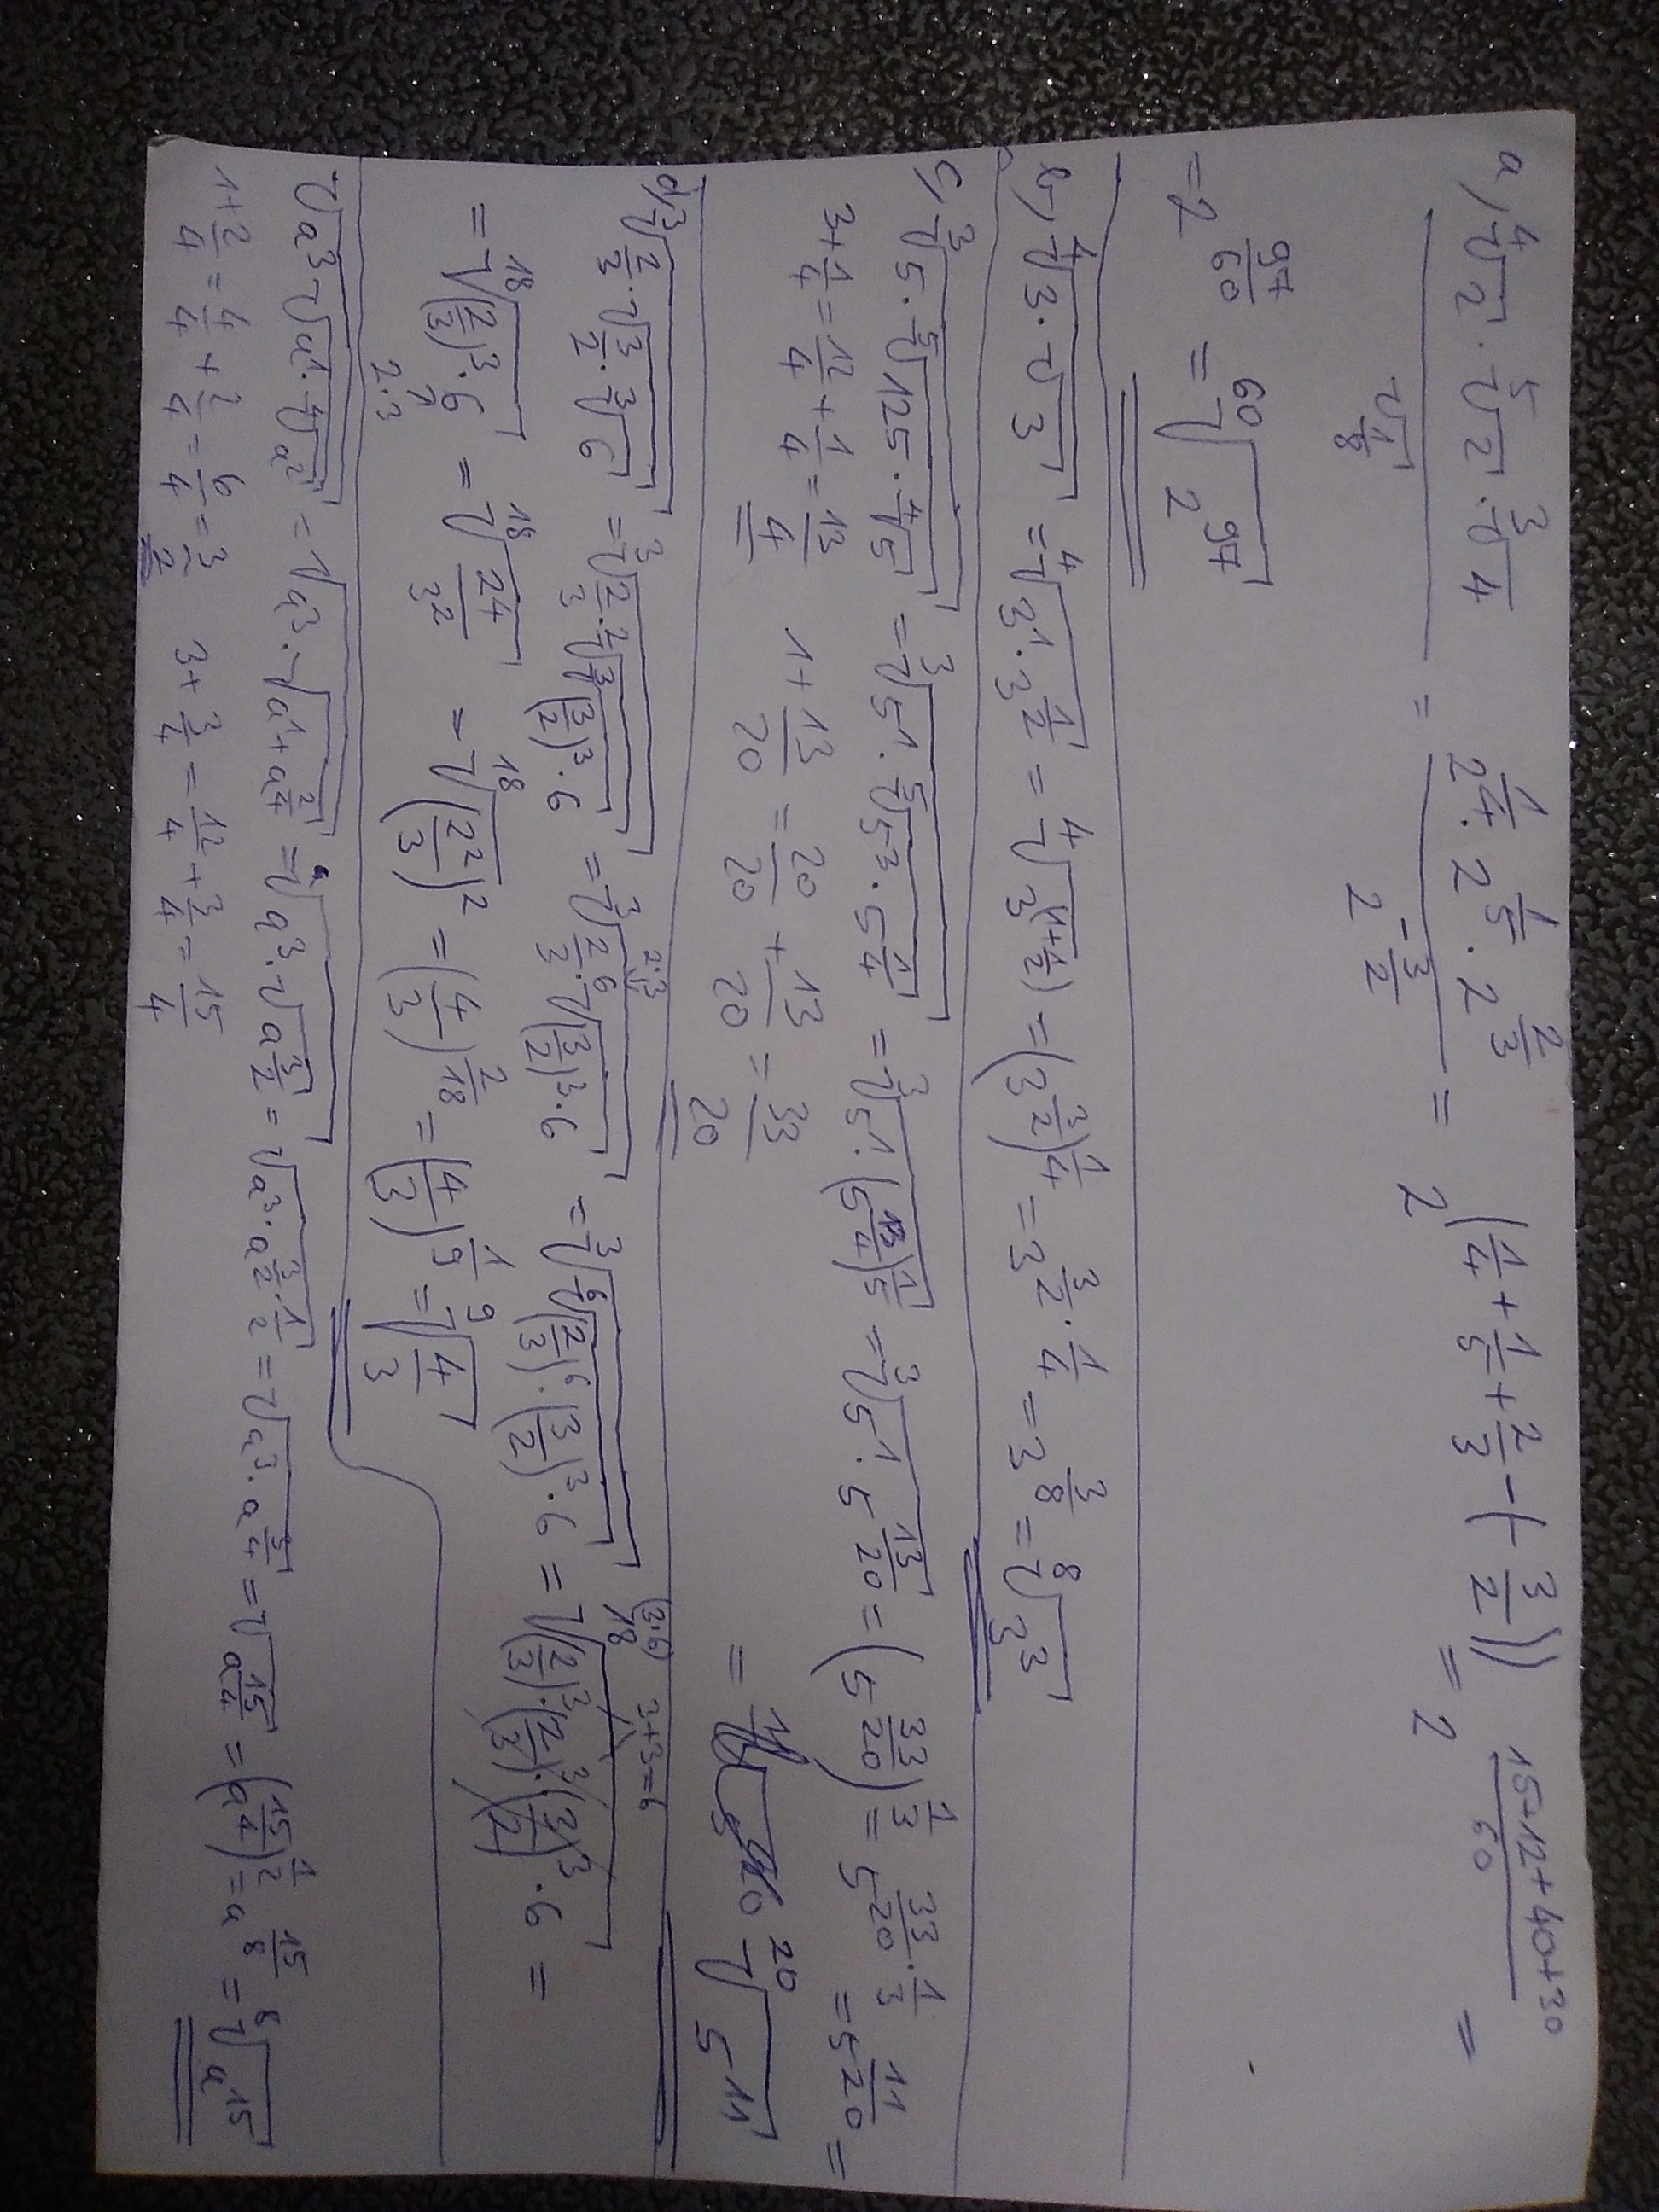 a, ⁴√2 · ⁵√2 · ³√4 / √(1/8) = 2^(1/4) · 2^(1/5) · 2^(2/3) / 2^(-3/2) = 2^(1/4 + 1/5 + 2/3 - (-3/2)) = 2^((15+12+40+30)/60) =
= 2^(97/60) = ⁶⁰√(2^97)
b, ⁴√(3 · √3) = ⁴√(3^1 · 3^(1/2)) = ⁴√(3^(1+1/2)) = (3^(3/2))^(1/4) = 3^(3/2 · 1/4) = 3^(3/8) = ⁸√(3^3)
c, ³√(5 · ⁵√(125 · ⁴√5)) = ³√(5^1 · ⁵√(5^3 · 5^(1/4))) = ³√(5^1 · (5^(13/4))^(1/5)) = ³√(5^1 · 5^(13/20)) = (5^(33/20))^(1/3) = 5^(33/20 · 1/3) = 5^(11/20) =
3 + 1/4 = 12/4 + 1/4 = 13/4 1 + 13/20 = 20/20 + 13/20 = 33/20 = ²⁰√(5^11)
d, ³√(2/3 · √(3/2 · ³√6)) = ³√(2/3 · ²√(³√((3/2)^3 · 6))) = ³√(2/3 · ⁶√((3/2)^3 · 6)) = ³√(⁶√((2/3)^6 · (3/2)^3 · 6)) = ¹⁸√((2/3)^3 · (2/3)^3 · (3/2)^3 · 6) =
2·3 (3·6) 3+3=6
= ¹⁸√((2/3)^3 · 6) = ¹⁸√(2^4 / 3^2) = ¹⁸√((2^2 / 3)^2) = (4/3)^(2/18) = (4/3)^(1/9) = ⁹√(4/3)
2·3
√(a^3 √(a^1 · ⁴√(a^2))) = √(a^3 · √(a^1 + a^(2/4))) = √(a^3 · √(a^(3/2))) = √(a^3 · a^(3/2 · 1/2)) = √(a^3 · a^(3/4)) = √(a^(15/4)) = (a^(15/4))^(1/2) = a^(15/8) = ⁸√(a^15)
1 + 2/4 = 4/4 + 2/4 = 6/4 = 3/2 3 + 3/4 = 12/4 + 3/4 = 15/4